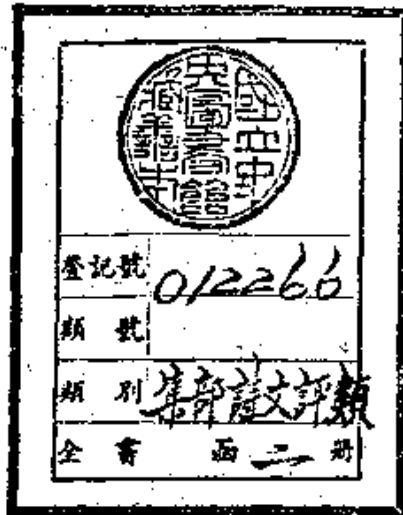 國立中
央圖書館
藏善本
登記號 012266
類號
類別 集部詩文評類
全書 函二冊